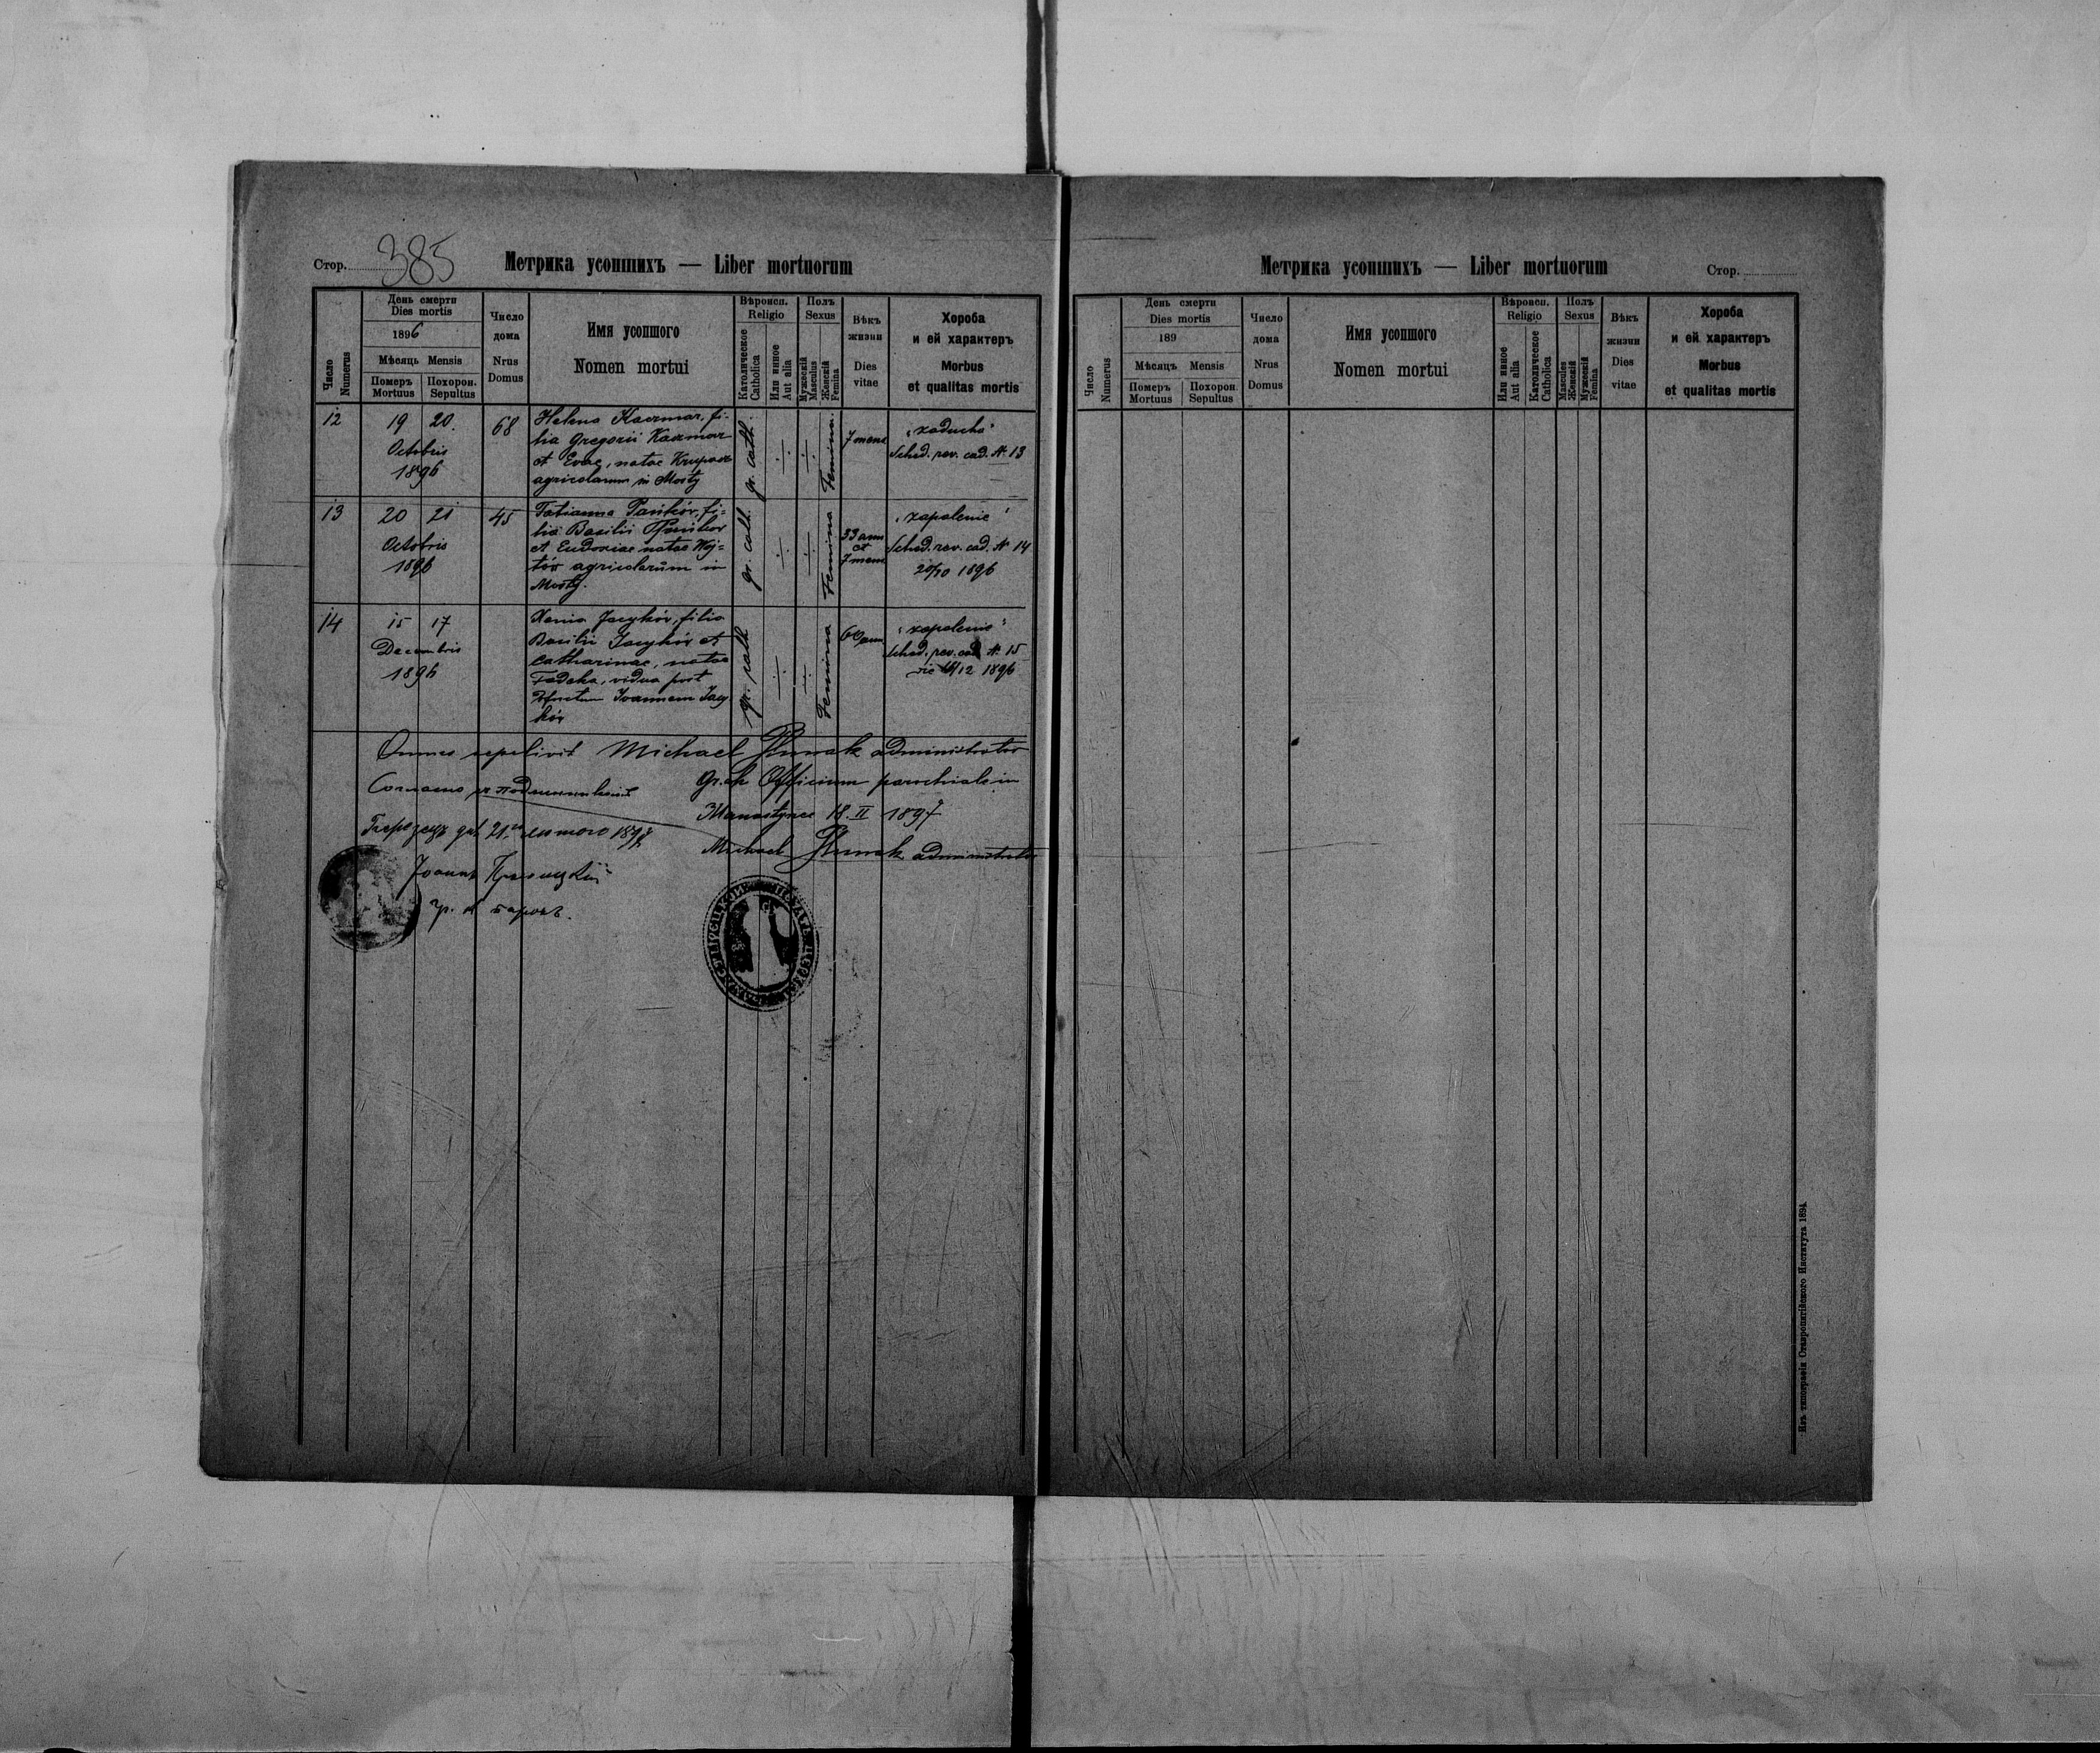 Стор. 385
Метрика усопшихъ — Liber mortuorum
Число
Numerus
День смерти
Dies mortis
1896
Мѣсяць Mensis
Померъ
Mortuus
Похорон.
Sepultus
Число
дома
Nrus
Domus
Имя усопшого
Nomen mortui
Вѣроисп.
Religio
Католическое
Catholica
Или инное
Aut alia
Полъ
Sexus
Мужескій
Masculus
Женскій
Femina
Вѣкъ
жизни
Dies
vitae
Хороба
и ей характеръ
Morbus
et qualitas mortis
12
19 20.
Octobris
1896
68
Helena Kaczmar, fi-
lia Gregorii Kaczmar
et Evae, natae
agricolarum in Mosty
gr. cath.
Femina
7 mens
"zaducha"
Sched. rev. cad. № 13
13
20 21
Octobris
1896
45
Tatianna Pańków, fi-
lia Basilii
et Eudoxiae natae Woj-
tów agricolarum in
Mosty.
gr. cath.
Femina
33 ann
et
7 mens
"zapalenie"
Sched. rev. cad. № 14
20/10 1896
14
15 17
Decembris
1896
Xenia Jacyków, filia
Basilii Jacyków et
Catharinae, natae
Fedeka, vidua post
Joannem Jacy
ków
gr. cath
Femina
60 ann
"zapalenie"
Sched. rev. cad № 15
1896
Omnes sepelivit Michael administrator
Gr. cath Officium parochiale in
18. II 1897
Michael administrator
Согласно
21 лютого 1897
Іоаннъ
гр. к.
Метрика усопшихъ — Liber mortuorum
Стор.
Число
Numerus
День смерти
Dies mortis
189
Мѣсяцъ Mensis
Померъ
Mortuus
Похорон.
Sepultus
Число
дома
Nrus
Domus
Имя усопшого
Nomen mortui
Вѣроисп.
Religio
Или инное
Aut alia
Католическое
Catholica
Полъ
Sexus
Masculus
Женскій
Мужескій
Femina
Вѣкъ
жизни
Dies
vitae
Хороба
и ей характеръ
Morbus
et qualitas mortis
Изъ типографіи Ставропигійского Института 1894.